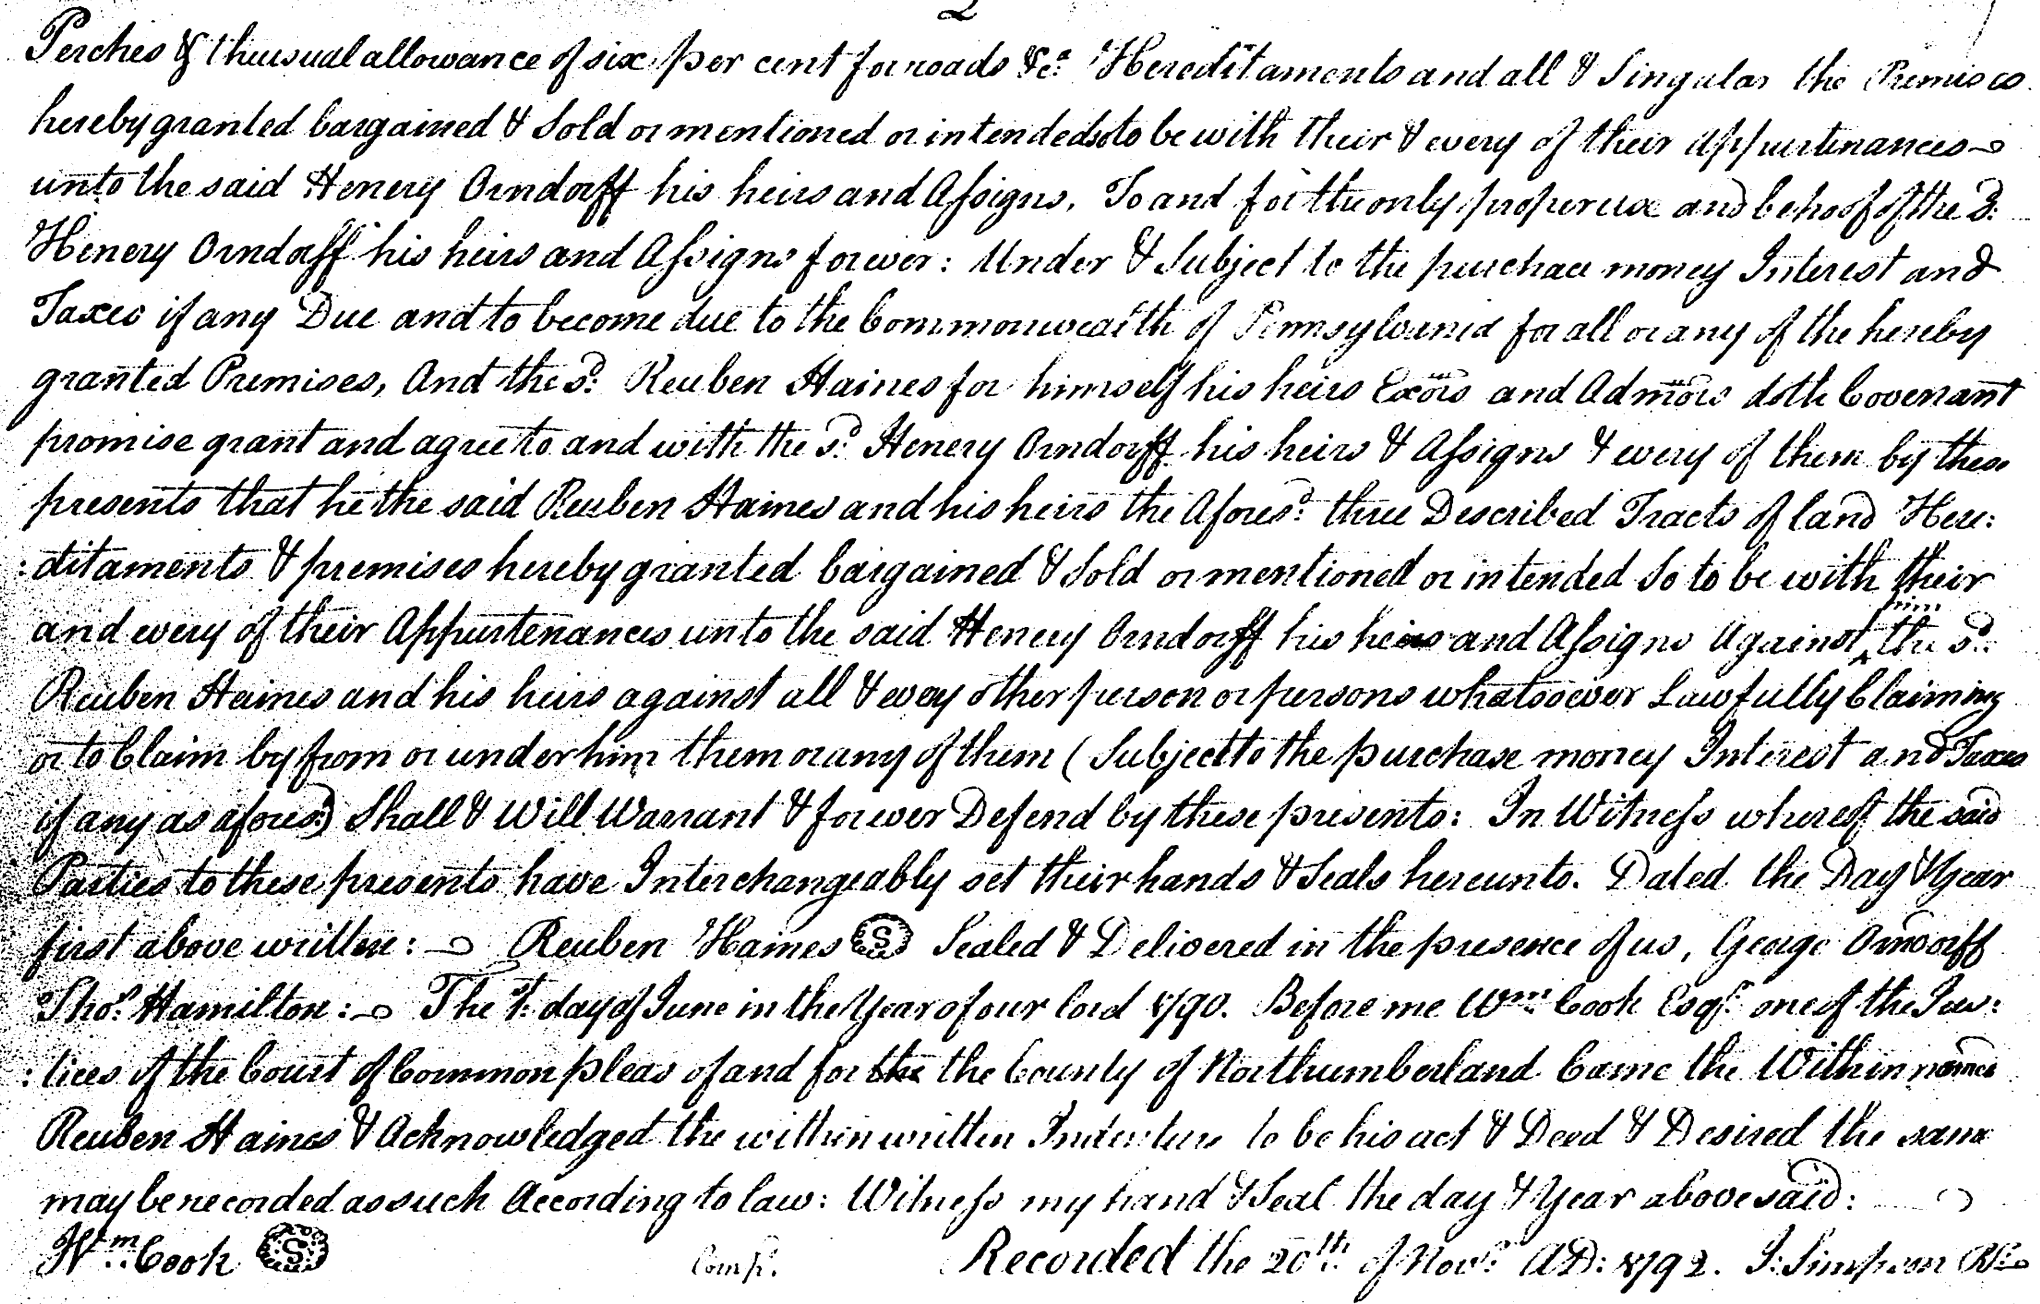 2
Perches & the usual allowance of six per cent for roads &ca. Hereditaments and all & Singular the Premises
hereby granted bargained & Sold or mentioned or intended so to be with their & every of their Appurtenances
unto the said Henery Orndorff his heirs and Assigns, To and for the only proper use and behoof of the Sd:
Henery Orndorff his heirs and Assigns forever: Under & Subject to the purchace money Interest and
Taxes if any Due and to become due to the Commonwealth of Pennsylvania for all or any of the hereby
granted Premises, And the sd: Reuben Haines for himself his heirs Exors and Admors doth Covenant
promise grant and agree to and with the sd. Henery Orndorff his heirs & Assigns & every of them by these
presents that he the said Reuben Haines and his heirs the Aforesd. three Described Tracts of land Here:
:ditaments & premises hereby granted bargained & Sold or mentioned or intended So to be with their
and every of their Appurtenances unto the said Henery Orndorff his heirs and Assigns Against him the sd:
Reuben Haines and his heirs against all & evey other person or persons whatsoever Lawfully Claiming
or to Claim by from or under him them or any of them (Subject to the purchase money Interest and Taxes
if any as aforesd:) Shall & Will Warrant & forever Defend by these presents: In Witness whereof the said
Parties to these presents have Interchangeably set their hands & Seals hereunto. Dated the Day & Year
first above written: Reuben Haines S Sealed & Delivered in the presence of us, George Orndorff
Thos. Hamilton: The 1t: day of June in the Year of our lord 1790. Before me Wm: Cook Esqr. one of the Jus:
:tices of the Court of Common pleas of and for the the County of Northumberland Came the Within named
Reuben Haines & Acknowledged the within written Indenture to be his act & Deed & Desired the same
may be recorded as such According to law: Witness my hand & Seal the day & Year abovesaid:
Wm: Cook S Comp. Recorded the 20th: of Novr: AD: 1792. J: Simpson Rr: